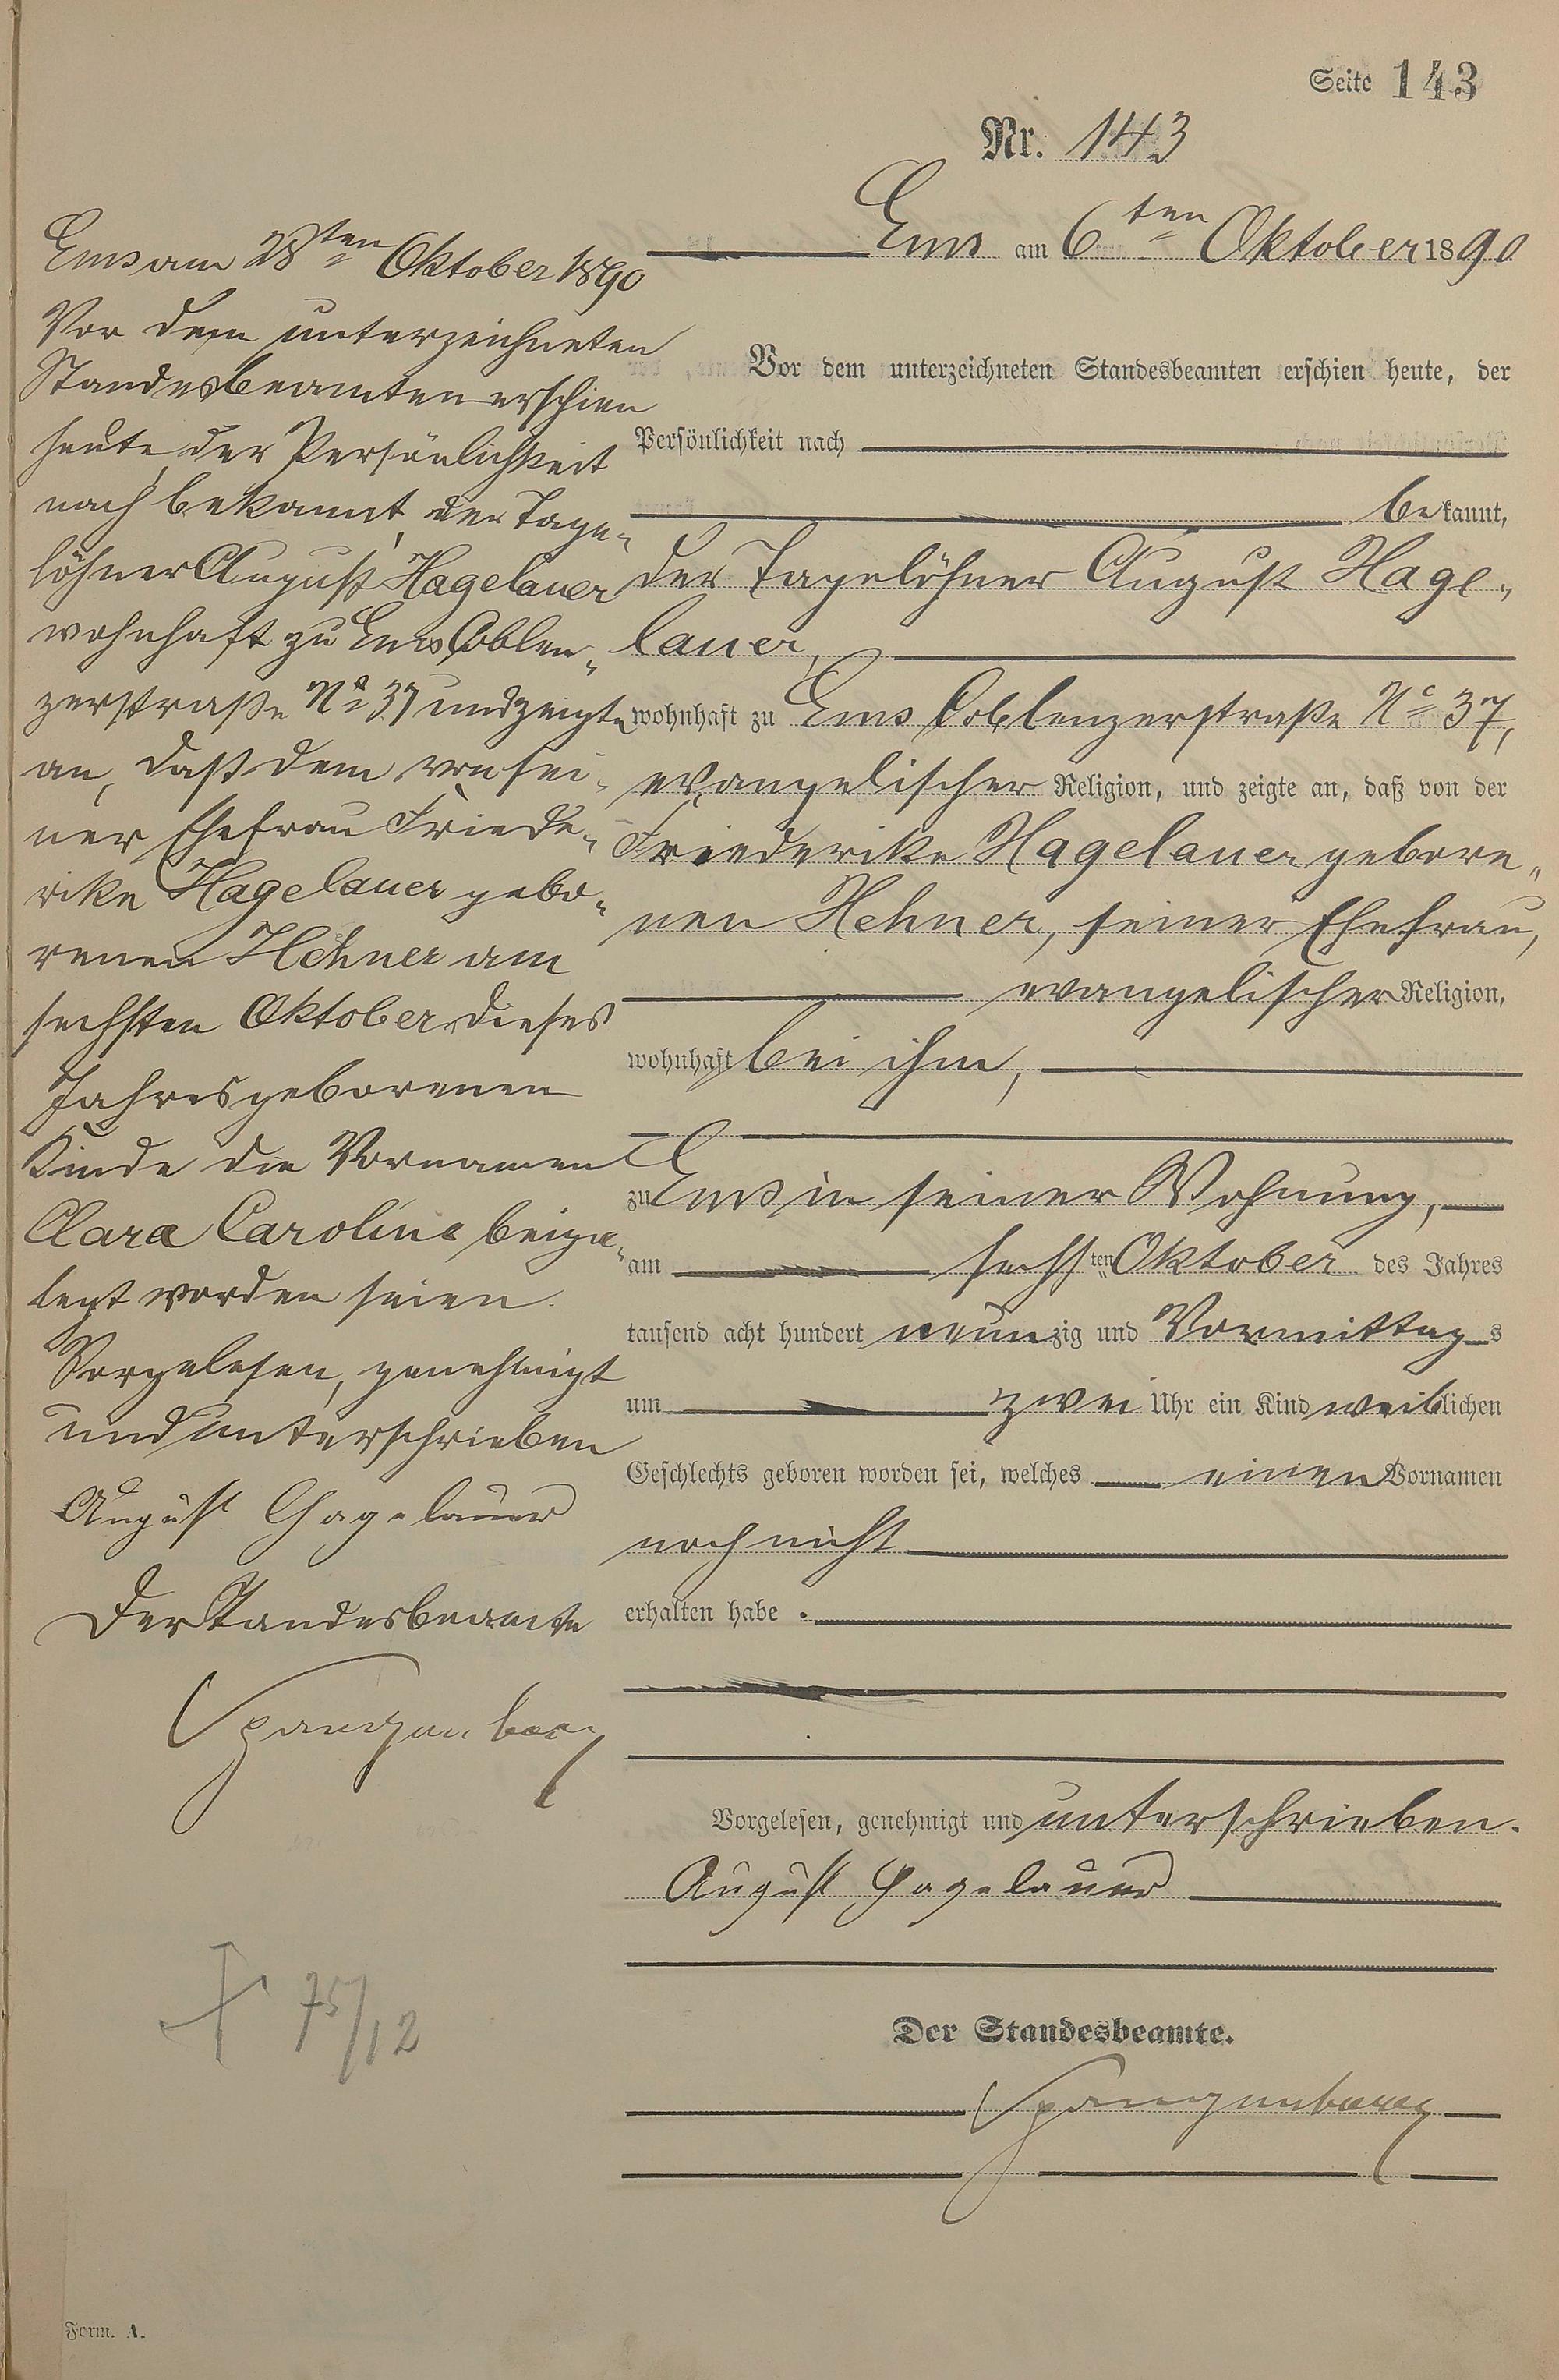 Seite 143
Nr. 143
Ems am 6ten Oktober 1890
Vor dem unterzeichneten Standesbeamten erschien heute, der
Persönlichkeit nach
bekannt,
der Tagelöhner August Hage„
lauer,
wohnhaft zu Ems Coblenzerstraße No 37,
evangelischer Religion, und zeigte an, daß von der
Friederike Hagelauer gebore„
nen Hehner, seiner Ehefrau,
evangelischer Religion,
wohnhaft bei ihm,
zu Ems in seiner Wohnung,
am sechsten Oktober des Jahres
tausend acht hundert neunzig und Vormittags
um zwei Uhr ein Kind weiblichen
Geschlechts geboren worden sei, welches einen Vornamen
noch nicht
erhalten habe.
Vorgelesen, genehmigt und unterschrieben.
August Hagelauer
Der Standesbeamte.
Spangenberg
Ems am 28ten Oktober 1890
Vor dem unterzeichneten
Standesbeamten erschien
heute, der Persönlichkeit
nach bekannt, der Tage„
löhner August Hagelauer
wohnhaft zu Ems Coblen„
zerstraße No 37 und zeigte
an, daß dem von sei„
ner Ehefrau Friede„
rike Hagelauer gebo„
renen Hehner am
sechsten Oktober dieses
Jahres geborenen
Kinde die Vornamen
Clara Caroline beige„
legt worden seien.
Vorgelesen, genehmigt
und unterschrieben
August Hagelauer
Der Standesbeamte
Spangenberg
† 75/12
Form. A.